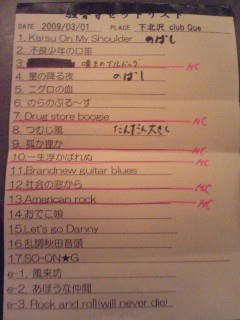 セットリスト
DATE 2009/03/01 PLACE 下北沢 club Que
1. Karsu On My Shoulder のばし
2. 不良少年の口笛
3. 嘆きのブルドッグ NC
4. 星の降る夜 のばし
5. ニグロの血
6. のらのぶる～す
7. Drug store boogie NC
8. つむじ風 だんだん大きく
9. 狐か狸か NC
10. 一生浮かばれぬ NC
11. Brandnew guitar blues
12. 社会の窓から NC
13. American rock NC
14. おでこ娘
15. Let's go Danny
16. 乱調秋田音頭
17. SO-ON★G
e-1. 風来坊
e-2. あほうな仲間
e-3. Rock and roll(will never die)